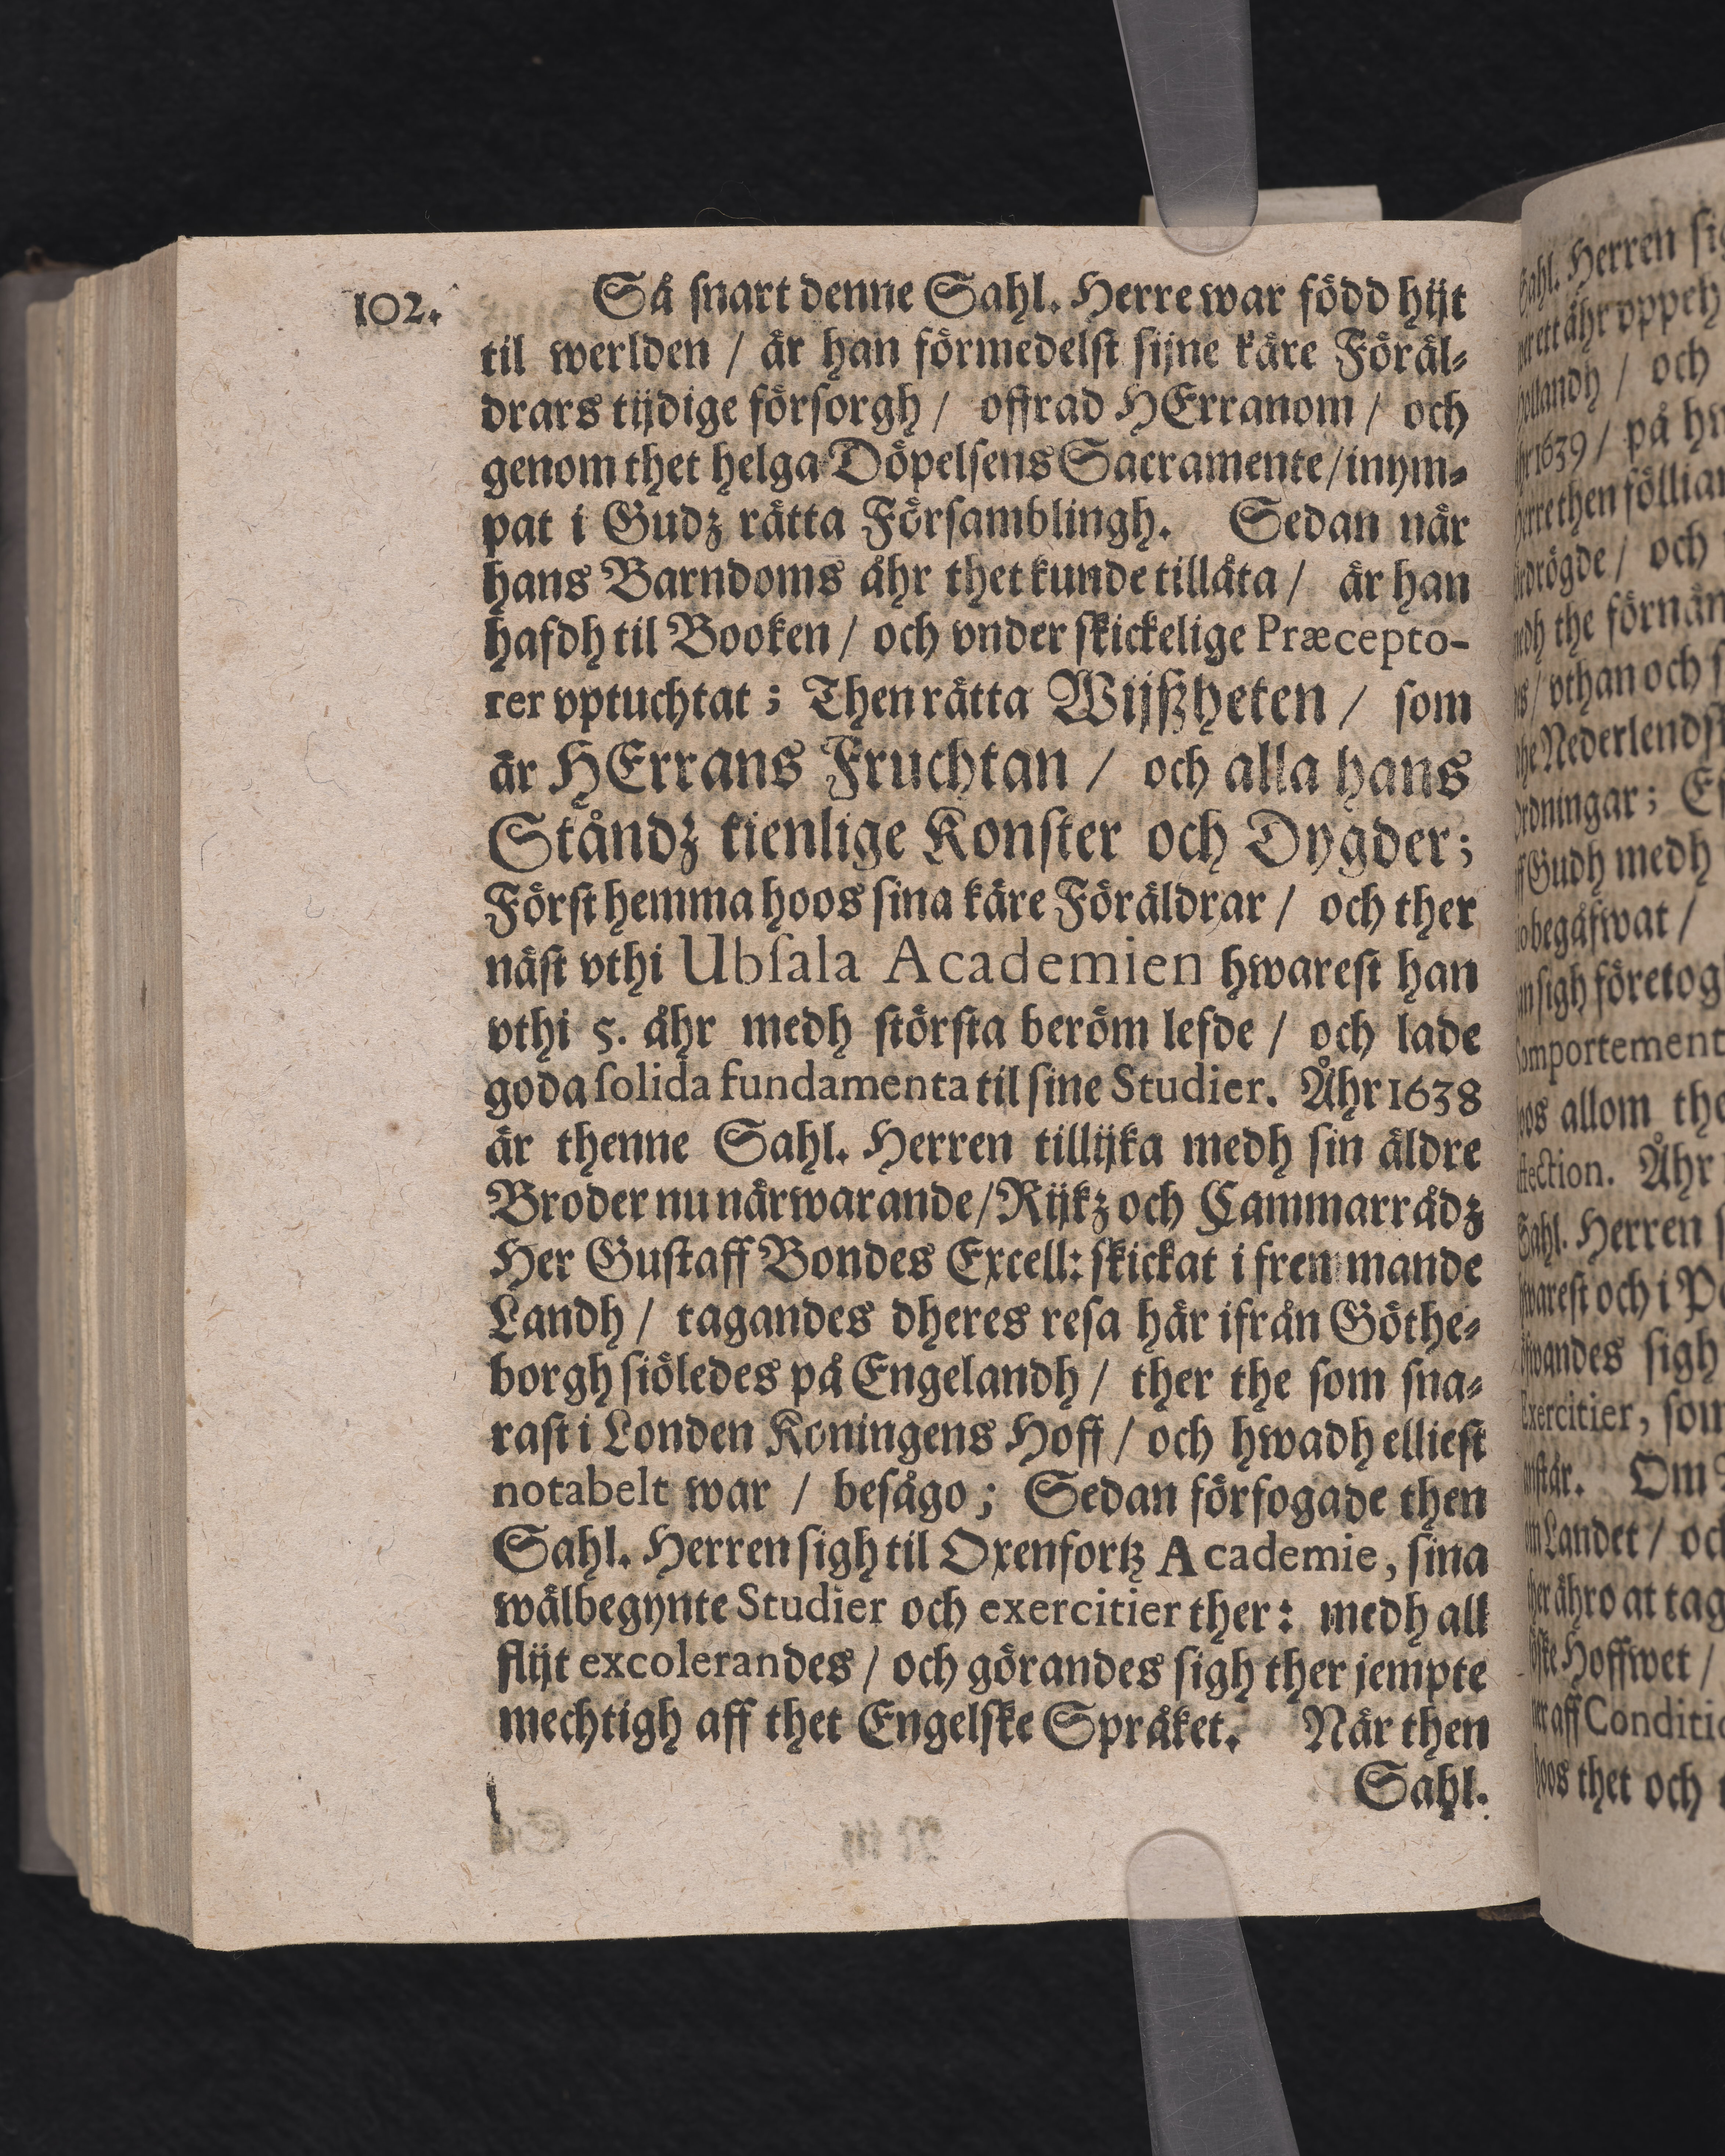 102.
Så snart denne Sahl. Herre war född hijt
til werlden / är han förmedelst sijne käre Föräl-
drars tijdige försorgh / offrad HErranom / och
genom thet helga Döpelsens Sacramente / inym-
pat i Gudz rätta Församblingh. Sedan när
hans Barndoms åhr thet kunde tillåta / är han
hafdh til Booken / och vnder skickelige Præcepto-
rer vptuchtat ; Then rätta Wijßheten / som
är HErrans Fruchtan / och alla hans
Ståndz tienlige Konster och Dygder ;
Först hemma hoos sina käre Föräldrar / och ther
näst vthi Ubsala Academien hwarest han
vthi 5. åhr medh största beröm lefde / och lade
goda solida fundamenta til sine Studier. Åhr 1638
är thenne Sahl. Herren tillijka medh sin äldre
Broder nu närwarande / Rijkz och Cammarrådz
Her Gustaff Bondes Excell: skickat i fremmande
Landh / tagandes dheres resa här ifrån Göthe-
borgh siöledes på Engelandh / ther the som sna-
rast i Londen Koningens Hoff / och hwadh elliest
notabelt war / besågo ; Sedan förfogade then
Sahl. Herren sigh til Oxenfortz Academie, sina
wälbegynte Studier och exercitier ther : medh all
flijt excolerandes / och görandes sigh ther jempte
mechtigh aff thet Engelske Språket. När then
Sahl.
Sahl. Herren
och
1639 / på
then föllian
/ och
the förnäm
/ vthan och
Nederlends
Gudh medh
begåfwat /
sigh företog
allom
Åhr
Sahl. Herren
och i
sigh
Exercitier, som
Om
Landet /
åhro at tag
Hoffwet /
aff Conditio
hoos thet och